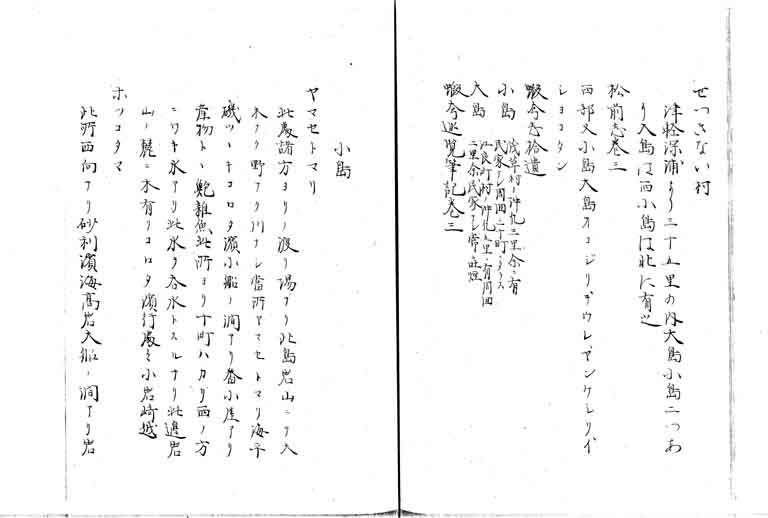 せつさない村
津軽深浦より三十五里の内大島小島二つあ
り大島は西小島は北に有之
松前志巻三
西部又小島大島オコシリテウレヤンケシリイ
ショコタン
蝦夷志拾遺
小島 浅草村ノ沖凡三里余ニ有
民家ナシ周囲二十町タラス
大島 江良町村ノ沖凡九里ニ有周囲
二里余民家ナシ常ニ吐煙
蝦夷巡覧筆記巻三
小島
ヤマセトマリ
此處諸方ヨリノ渡リ場ナリ此島岩山ニテ大
木ナク野アリ川ナシ當所ヤマセトマリ海平
磯ツヽキコロタ濱小船ノ澗アリ番小屋アリ
産物トヽ鮑雑魚此所ヨリ十町ハカリ西ノ方
ニワキ水アリ此水ヲ呑水トスルナリ此邊岩
山ノ麓ニ木有リコロタ濱行處々小岩崎越
ホツコタマ
此所西向ナリ砂利濱海高岩大船ノ澗アリ岩